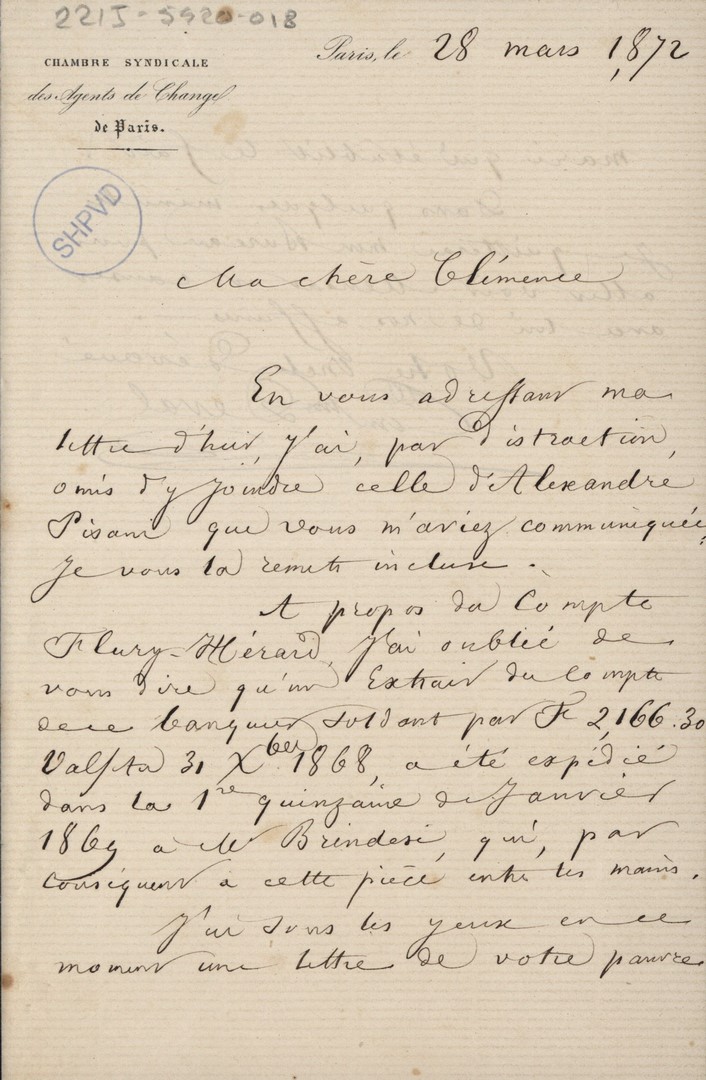 221J-5920-018
CHAMBRE SYNDICALE
des Agents de Change
de Paris.
SHPVD
Paris, le 28 mars 1872
Ma chère Clémence
En vous adressant ma
lettre d'hier, j'ai, par distraction,
omis d'y joindre celle d'Alexandre
Pisani que vous m'aviez communiquée,
Je vous la remets incluse.
A propos du Compte
Flury-Hérard, j'ai oublié de
vous dire qu'un Extrait du Compte
de ce banquier soldant par Fr 2,166.30
31 Xber 1868, a été expédié
dans la 1re quinzaine de Janvier
1869 à Mr Brindesi, qui, par
conséquent a cette pièce entre les mains.
J'ai sous les yeux en ce
moment une lettre de votre pauvre